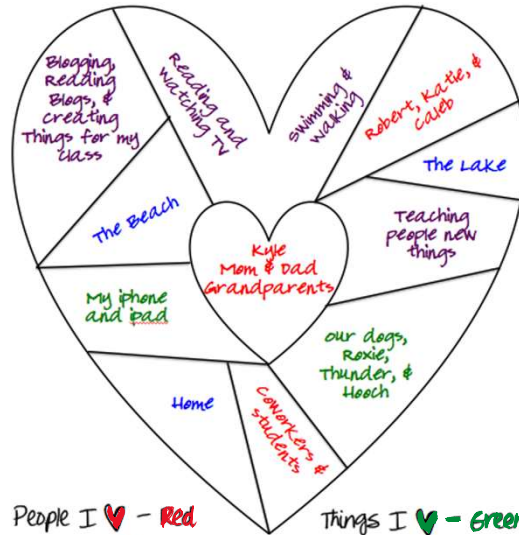 Blogging,
Reading
Blogs, &
creating
Things for my
class
Reading and
Watching TV
Swimming &
Walking
Robert, Katie, &
Caleb
The Lake
The Beach
Teaching
people new
things
Kyle
Mom & Dad
Grandparents
My iphone
and ipad
our dogs,
Roxie,
Thunder, &
Hooch
Home
Coworkers &
students
People I ♥ - Red
Things I ♥ - Green